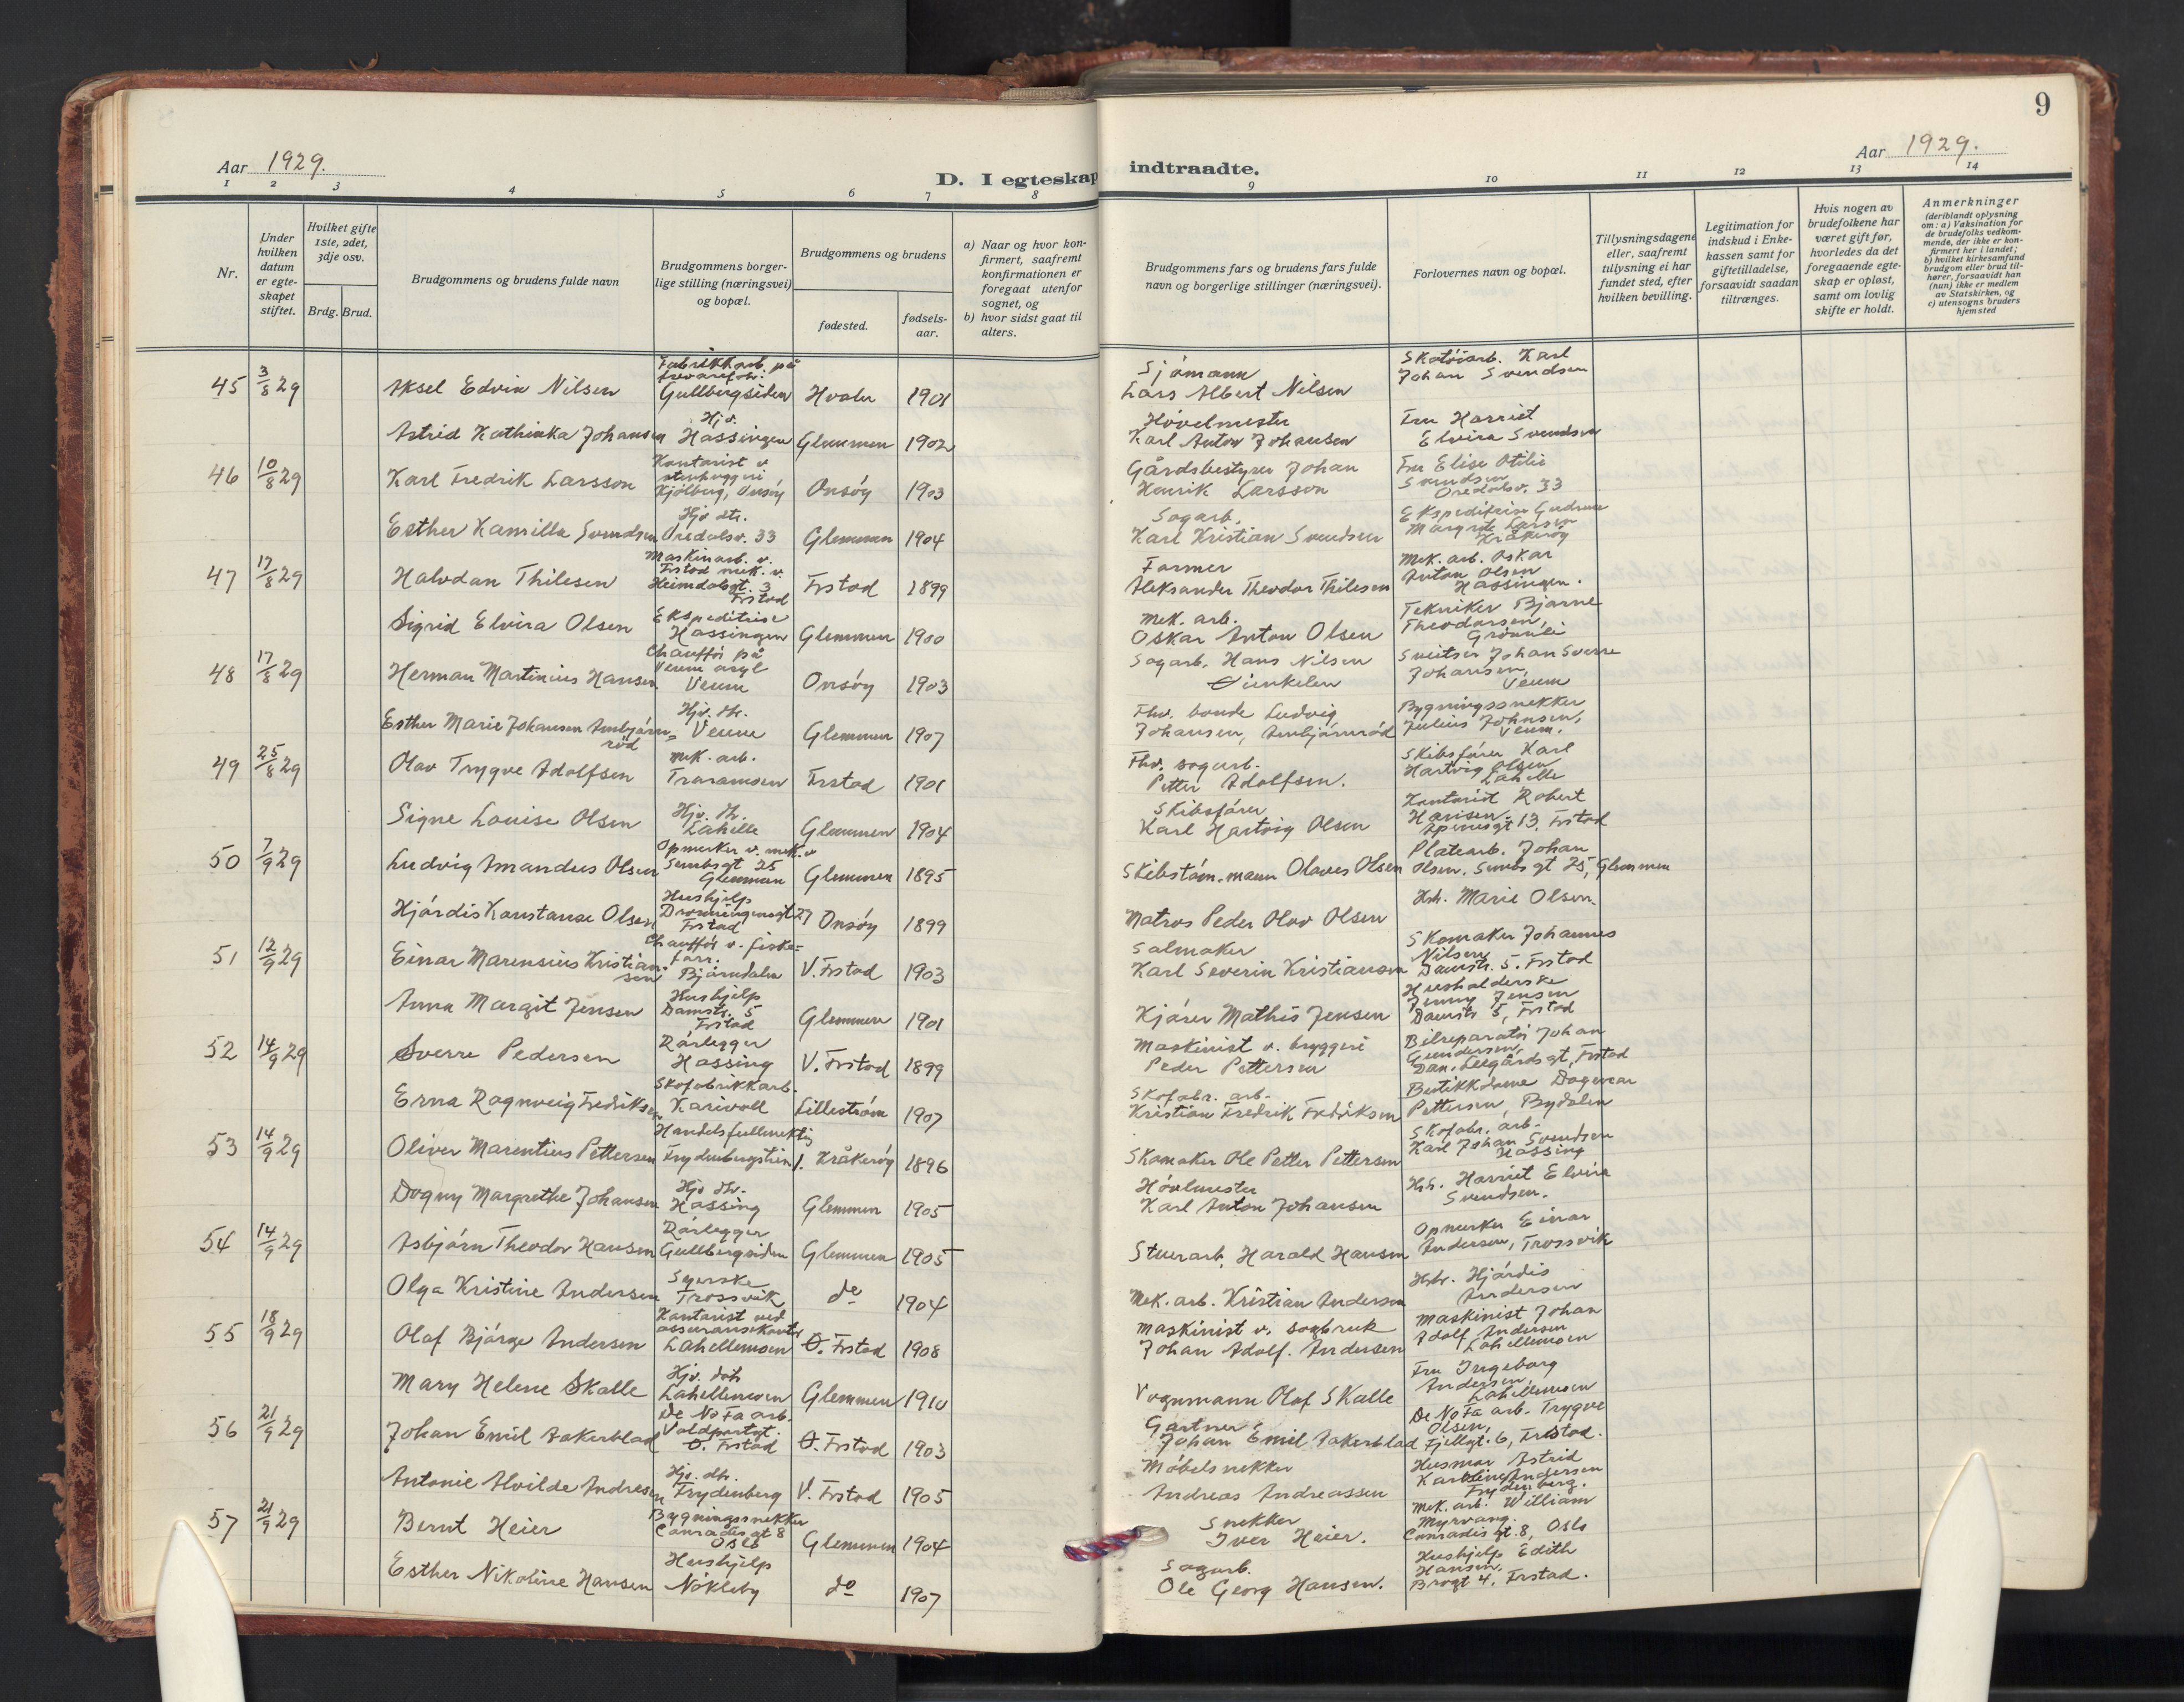 9
Aar 1929.
D. I egteskap
indtraadte.
Aar 1929.
1 2 3 4 5 6 7 8 9 10 11 12 13 14
Nr.
Under hvilken datum er egteskapet stiftet.
Hvilket gifte 1ste, 2det, 3dje osv.
Brdg. Brud.
Brudgommens og brudens fulde navn
Brudgommens borgerlige stilling (næringsvei) og bopæl.
Brudgommens og brudens
fødested.
fødselsaar.
a) Naar og hvor konfirmert, saafremt konfirmationen er foregaat utenfor sognet, og
b) hvor sidst gaat til alters.
Brudgommens fars og brudens fars fulde navn og borgerlige stillinger (næringsvei).
Forlovernes navn og bopæl.
Tillysningsdagene eller, saafremt tillysning ei har fundet sted, efter hvilken bevilling.
Legitimation for indskud i Enkekassen samt for giftetilladelse, forsaavidt saadan tiltrænges.
Hvis nogen av brudefolkene har været gift før, hvorledes da det foregaaende egteskap er opløst, samt om lovlig skifte er holdt.
Anmerkninger
(deriblandt oplysning om: a) Vaksination for de brudefolks vedkommende, der ikke er konfirmert her i landet; b) hvilket kirkesamfund brudgom eller brud tilhører, forsaavidt han (hun) ikke er medlem av Statskirken, og c) utensogns bruders hjemsted
45 3/8 29 Aksel Edvin Nilsen Fabrikkarb. på Gullbergsiden Hvaler 1901 Sjömann Lars Albert Nilsen Skotöiarb. Karl Johan Svendsen
Astrid Kathinka Johansen Hjv. Hassingen Glemmen 1902 Hövelmester Karl Anton Johansen Fru Harriet Elvira Svendsen
46 10/8 29 Karl Fredrik Larsson Kontorist v. stenhuggeri Kjölberg, Onsöy Onsöy 1903 Gårdsbestyrer Johan Henrik Larsson Fru Elise Otilie Svendsen Oredalsv. 33
Esther Kamilla Svendsen Hjv. dtr. Oredalsv. 33 Glemmen 1904 Sagarb. Karl Kristian Svendsen Ekspeditrise Gudrun Margrete Larsen Kråkeröy
47 17/8 29 Halvdan Thilesen Maskinarb. v. Frstad mek. v. Heimdalsgt. 3 Frstad Frstad 1899 Farmer Aleksander Theodor Thilesen Mek. arb. Oskar Anton Olsen Hassingen.
Sigrid Elvira Olsen Ekspeditrise Hassingen Glemmen 1900 Mek. arb. Oskar Anton Olsen Tekniker Bjarne Theodorsen, Grönnli
48 17/8 29 Herman Martinius Hansen Chaufför på Veum asyl Veum Onsöy 1903 Sagarb. Hans Nilsen Sveitser Johan Sverre Johansen, Veum
Esther Marie Johansen Ambjörnröd Hjv. dtr. Veum Glemmen 1907 Fhv. bonde Ludvig Johansen, Ambjörnröd Bygningssnekker Julius Johnsen, Veum.
49 25/8 29 Olav Trygve Adolfsen Mek. arb. Traramoen Frstad 1901 Fhv. sagarb. Petter Adolfsen. Skibsförer Karl Hartvig Olsen Lahelle
Signe Louise Olsen Hjv. dtr. Lahelle Glemmen 1904 Skibsförer Karl Hartvig Olsen Kontorist Robert Hansen. Apenesgt 13. Frstad
50 7/9 29 Ludvig Amandus Olsen Opmerker v. mek. v Sembsgt 25 Glemmen Glemmen 1895 Skibstöm.mann Olaves Olsen Platearb. Johan Olsen. Sembsgt 25, Glemmen
Hjördis Konstanse Olsen Hushjelp Dronningensgt 27 Frstad Onsöy 1899 Matros Peder Olav Olsen Hst. Marie Olsen.
51 12/9 29 Einar Marensius Kristiansen Chaufför v. fiskeforr. Björndalen V. Frstad 1903 Salmaker Karl Severin Kristiansen Skomaker Johannes Nilsen Damstr. 5. Frstad
Anna Margit Jensen Hushjelp Damstr. 5 Frstad Glemmen 1901 Kjörer Mathis Jensen Husholderske Jenny Jensen Damstr 5, Frstad
52 14/9 29 Sverre Pedersen Rörlegger Hassing V. Frstad 1899 Maskinist v. bryggeri Peder Pettersen Bilreparatör Johan Gundersen, Dan. Leegårdsgt, Frstad
Erna Ragnveig Fredriksen Skofabrikkarb. Karivoll Lilleström 1907 Skofabr. arb. Kristian Fredrik Fredriksen Butikkdame Dagmar Pettersen, Bydalen
53 14/9 29 Oliver Marentius Pettersen Handelsfullmektig Frydenbergstien 1. Kråkeröy 1896 Skomaker Ole Petter Pettersen Skofabr. arb. Karl Johan Svendsen Hassing
Dagny Margrethe Johansen Hjv dtr. Hassing Glemmen 1905 Hövlmester Karl Anton Johansen Hst. Harriet Elvira Svendsen.
54 14/9 29 Asbjörn Theodor Hansen Rörlegger Gullbergsiden Glemmen 1905 Stuerarb. Harald Hansen Opmerker Einar Andersen, Trossvik
Olga Kristine Andersen Syerske Trossvik do 1904 Mek. arb. Kristian Andersen Hst. Hjördis Andersen
55 18/9 29 Olaf Björge Andersen Kontorist ved assuransekontor Lahellemoen Ö. Frstad 1908 Maskinist v. sagbruk Johan Adolf. Andersen Maskinist Johan Adolf Andersen Lahellemoen
Mary Helene Skalle Hjv. dotr Lahellemoen Glemmen 1910 Vognmann Olaf Skalle Fru Ingeborg Andersen, Lahellemoen
56 21/9 29 Johan Emil Aakerblad De No Fa arb. Voldportgt. Ö. Frstad Ö. Frstad 1903 Gartner Johan Emil Aakerblad De No Fa arb. Trygve Olsen, Fjellgt. 6, Frstad.
Antonie Alvilde Andresen Hjv. dtr. Frydenberg V. Frstad 1905 Möbelsnekker Andreas Andreassen Husmor Astrid Karoline Andersen Frydenberg.
57 21/9 29 Bernt Heier Bygningssnekker Conradisgt 8 Oslo Glemmen 1904 Snekker Iver Heier. Mek. arb. William Myrvang. Conradisgt. 8, Oslo
Esther Nikoline Hansen Hushjelp Nökleby do 1907 Sagarb. Ole Georg Hansen. Hushjelp Edith Hansen. Brogt 4, Frstad.